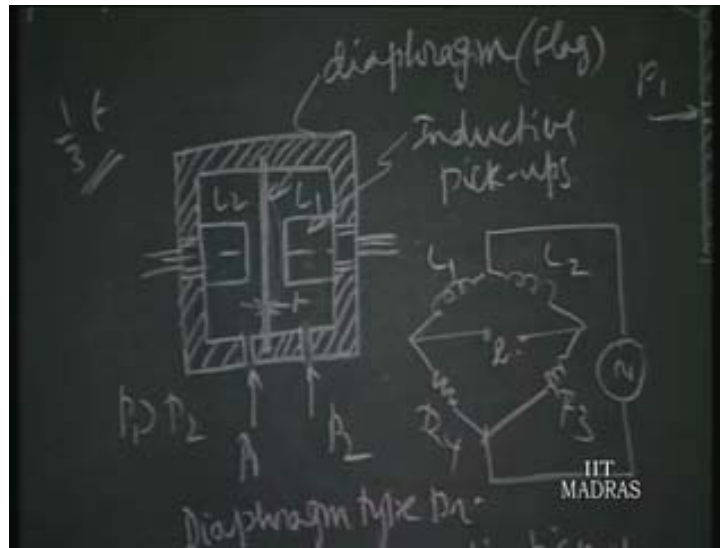 diaphragm (flag)
P1
1/3 t
Inductive
pick-ups
L2 L1
t
L1 L2
R4 R3
P1 > P2
P1 P2
IIT
MADRAS
Diaphragm type Pr.